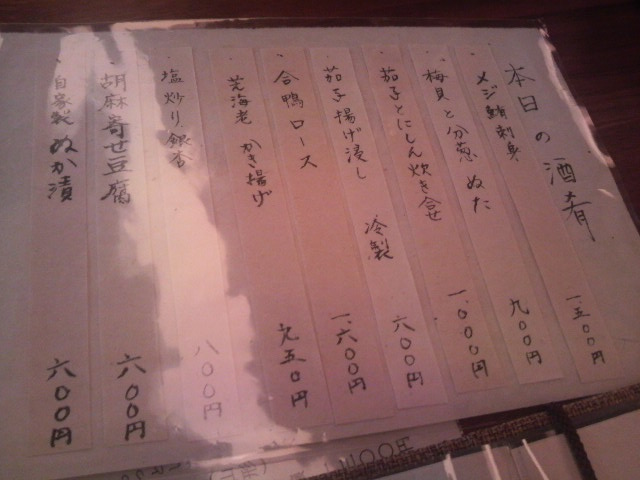 本日の酒肴
メジ鮪刺身 一、五〇〇円
梅貝と分葱ぬた 九〇〇円
茄子とにしん炊き合せ 一、〇〇〇円
茄子揚げ浸し 冷製 六〇〇円
合鴨ロース 一、六〇〇円
芝海老 かき揚げ 九五〇円
塩炒り銀杏 八〇〇円
胡麻寄せ豆腐 六〇〇円
自家製ぬか漬 六〇〇円